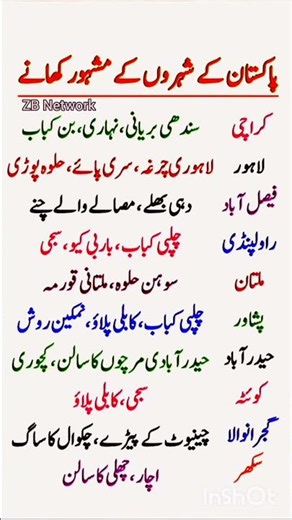 پاکستان کے شہروں کے مشہور کھانے
ZB Network
کراچی سندھی بریانی، نہاری، بن کباب
لاہور لاہوری چرغہ، سری پائے، حلوہ پوڑی
فیصل آباد دہی بھلے، مصالے والے چنے
راولپنڈی چپلی کباب، باربی کیو، سجی
ملتان سوہن حلوہ، ملتانی قورمہ
پشاور چپلی کباب، کابلی پلاؤ، نمکین روش
حیدرآباد حیدرآبادی مرچوں کا سالن، کچوری
کوئٹہ سجی، کابلی پلاؤ
گجرانوالا چینیوٹ کے پیڑے، چکوال کا ساگ
سکھر اچار، چھلی کا سالن
InShOt